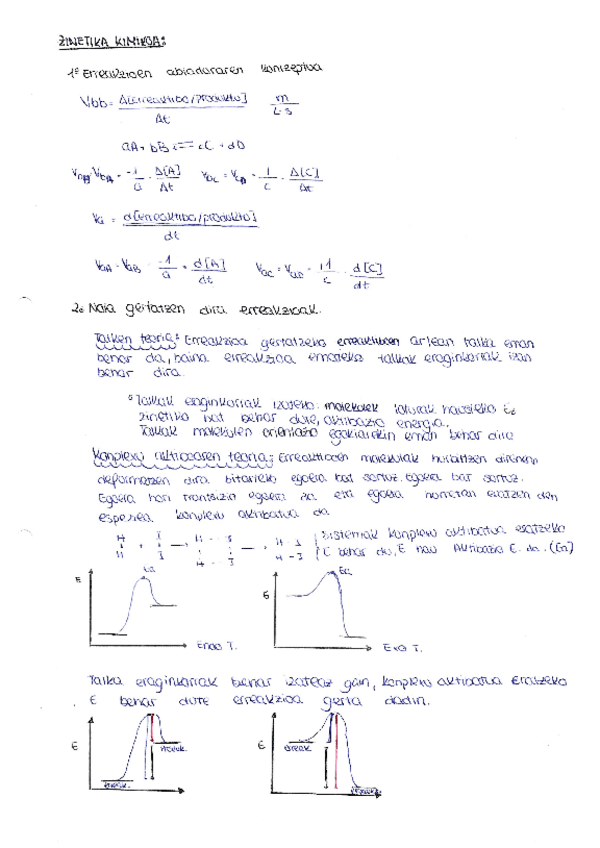 ZINETIKA KIMIKOA:
1º Erreakzioen abiaduraren kontzeptua
Vbb = Δ[erreaktibo/produktu] / Δt    m / L·s
aA + bB ⇌ cC + dD
= -1/a · Δ[A]/Δt    = 1/c · Δ[C]/Δt
Va = d[erreaktibo/produktu] / dt
VaA = VaB = -1/a · d[A]/dt    VaC = VaD = +1/c · d[C]/dt
2. Nola gertatzen dira erreakzioak.
Talken teoria: Erreakzioa gertatzeko erreaktiboen artean talka eman
behar da, baina erreakzioa emateko talkak eraginkorrak izan
behar dira.
Talkak eraginkorrak izateko: molekulek loturak hausteko E
zinetiko bat behar dute, aktibazio energia.
Talkak molekulen orientazio egokiarekin eman behar dira
Konplexu aktibatuaren teoria: Erreaktiboen molekulak hurbiltzen direnean,
deformatzen dira bitarteko egoera bat sortuz. Egoera bat sortuz.
Egoera hori trantsizio egoera da eta egoera horretan eratzen den
espeziea konplexu aktibatua da
H I H ··· I H - I Sistemak konplexu aktibatua eratzeko
H I H ··· I H - I E behar du, E hau Aktibazio E. da. (Ea)
E Ea Endo T.
E Ea Exo T.
Talka eraginkorrak behar izateaz gain, konplexu aktibatua eratzeko
E behar dute erreakzioa gerta dadin.
E
E erreak.